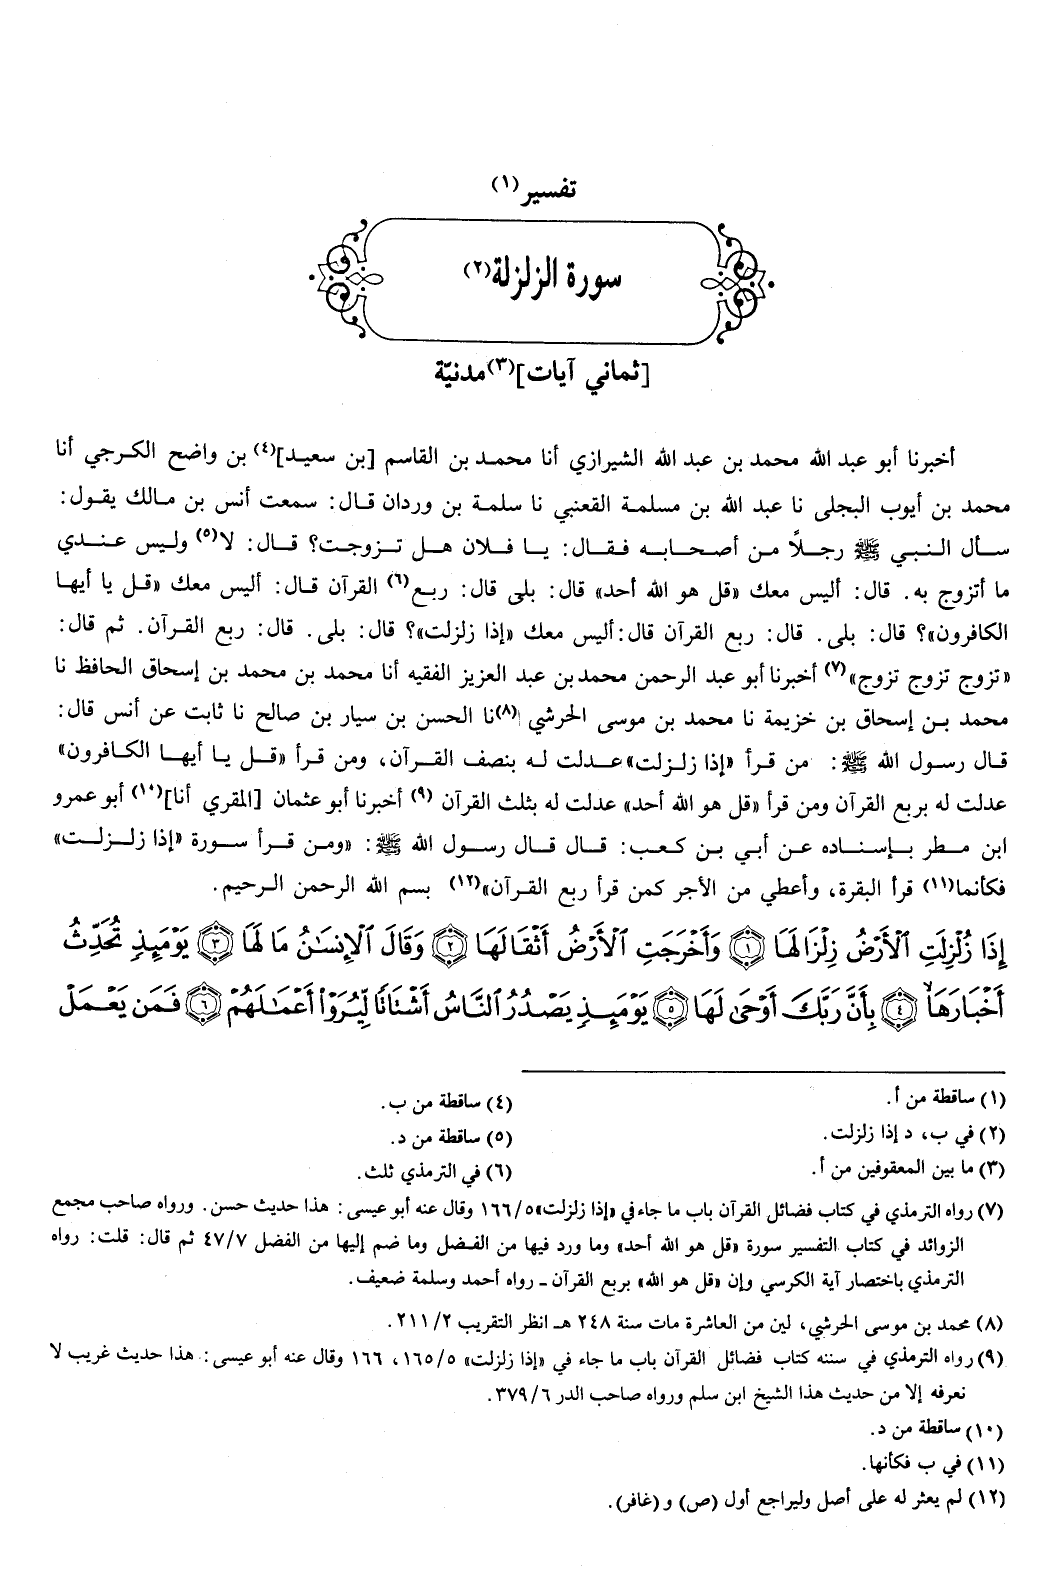 تفسير(١)
سورة الزلزلة(٢)
[ثماني آيات](٣) مدنيّة
أخبرنا أبو عبد الله محمد بن عبد الله الشيرازي أنا محمد بن القاسم [بن سعيد](٤) بن واضح الكرجي أنا
محمد بن أيوب البجلى نا عبد الله بن مسلمة القعنبي نا سلمة بن وردان قال: سمعت أنس بن مالك يقول:
سأل النبي ﷺ رجلاً من أصحابه فقال: يا فلان هل تزوجت؟ قال: لا(٥) وليس عندي
ما أتزوج به. قال: أليس معك «قل هو الله أحد» قال: بلى قال: ربع(٦) القرآن قال: أليس معك «قل يا أيها
الكافرون»؟ قال: بلى. قال: ربع القرآن قال: أليس معك «إذا زلزلت»؟ قال: بلى. قال: ربع القرآن. ثم قال:
«تزوج تزوج تزوج»(٧) أخبرنا أبو عبد الرحمن محمد بن عبد العزيز الفقيه أنا محمد بن محمد بن إسحاق الحافظ نا
محمد بن إسحاق بن خزيمة نا محمد بن موسى الحرشي (٨)نا الحسن بن سيار بن صالح نا ثابت عن أنس قال:
قال رسول الله ﷺ: من قرأ «إذا زلزلت» عدلت له بنصف القرآن، ومن قرأ «قل يا أيها الكافرون»
عدلت له بربع القرآن ومن قرأ «قل هو الله أحد» عدلت له بثلث القرآن (٩) أخبرنا أبو عثمان [المقري أنا](١٠) أبو عمرو
ابن مطر بإسناده عن أبي بن كعب: قال قال رسول الله ﷺ: «ومن قرأ سورة «إذا زلزلت»
فكأنما(١١) قرأ البقرة، وأعطي من الأجر كمن قرأ ربع القرآن»(١٢) بسم الله الرحمن الرحيم.
إِذَا زُلْزِلَتِ ٱلْأَرْضُ زِلْزَالَهَا ١ وَأَخْرَجَتِ ٱلْأَرْضُ أَثْقَالَهَا ٢ وَقَالَ ٱلْإِنسَٰنُ مَا لَهَا ٣ يَوْمَئِذٍ تُحَدِّثُ
أَخْبَارَهَا ٤ بِأَنَّ رَبَّكَ أَوْحَىٰ لَهَا ٥ يَوْمَئِذٍ يَصْدُرُ ٱلنَّاسُ أَشْتَاتًا لِّيُرَوْا۟ أَعْمَٰلَهُمْ ٦ فَمَن يَعْمَلْ
(١) ساقطة من أ.
(٢) في ب، د إذا زلزلت.
(٣) ما بين المعقوفين من أ.
(٤) ساقطة من ب.
(٥) ساقطة من د.
(٦) في الترمذي ثلث.
(٧) رواه الترمذي في كتاب فضائل القرآن باب ما جاء في «إذا زلزلت» ١٦٦/٥ وقال عنه أبو عيسى: هذا حديث حسن. ورواه صاحب مجمع
الزوائد في كتاب التفسير سورة «قل هو الله أحد» وما ورد فيها من الفضل وما ضم إليها من الفضل ٤٧/٧ ثم قال: قلت: رواه
الترمذي باختصار آية الكرسي وإن «قل هو الله» بربع القرآن ـ رواه أحمد وسلمة ضعيف.
(٨) محمد بن موسى الحرشي، لين من العاشرة مات سنة ٢٤٨ هـ انظر التقريب ٢١١/٢.
(٩) رواه الترمذي في سننه كتاب فضائل القرآن باب ما جاء في «إذا زلزلت» ١٦٥/٥، ١٦٦ وقال عنه أبو عيسى: هذا حديث غريب لا
نعرفه إلا من حديث هذا الشيخ ابن سلم ورواه صاحب الدر ٣٧٩/٦.
(١٠) ساقطة من د.
(١١) في ب فكأنها.
(١٢) لم يعثر له على أصل وليراجع أول (ص) و (غافر).